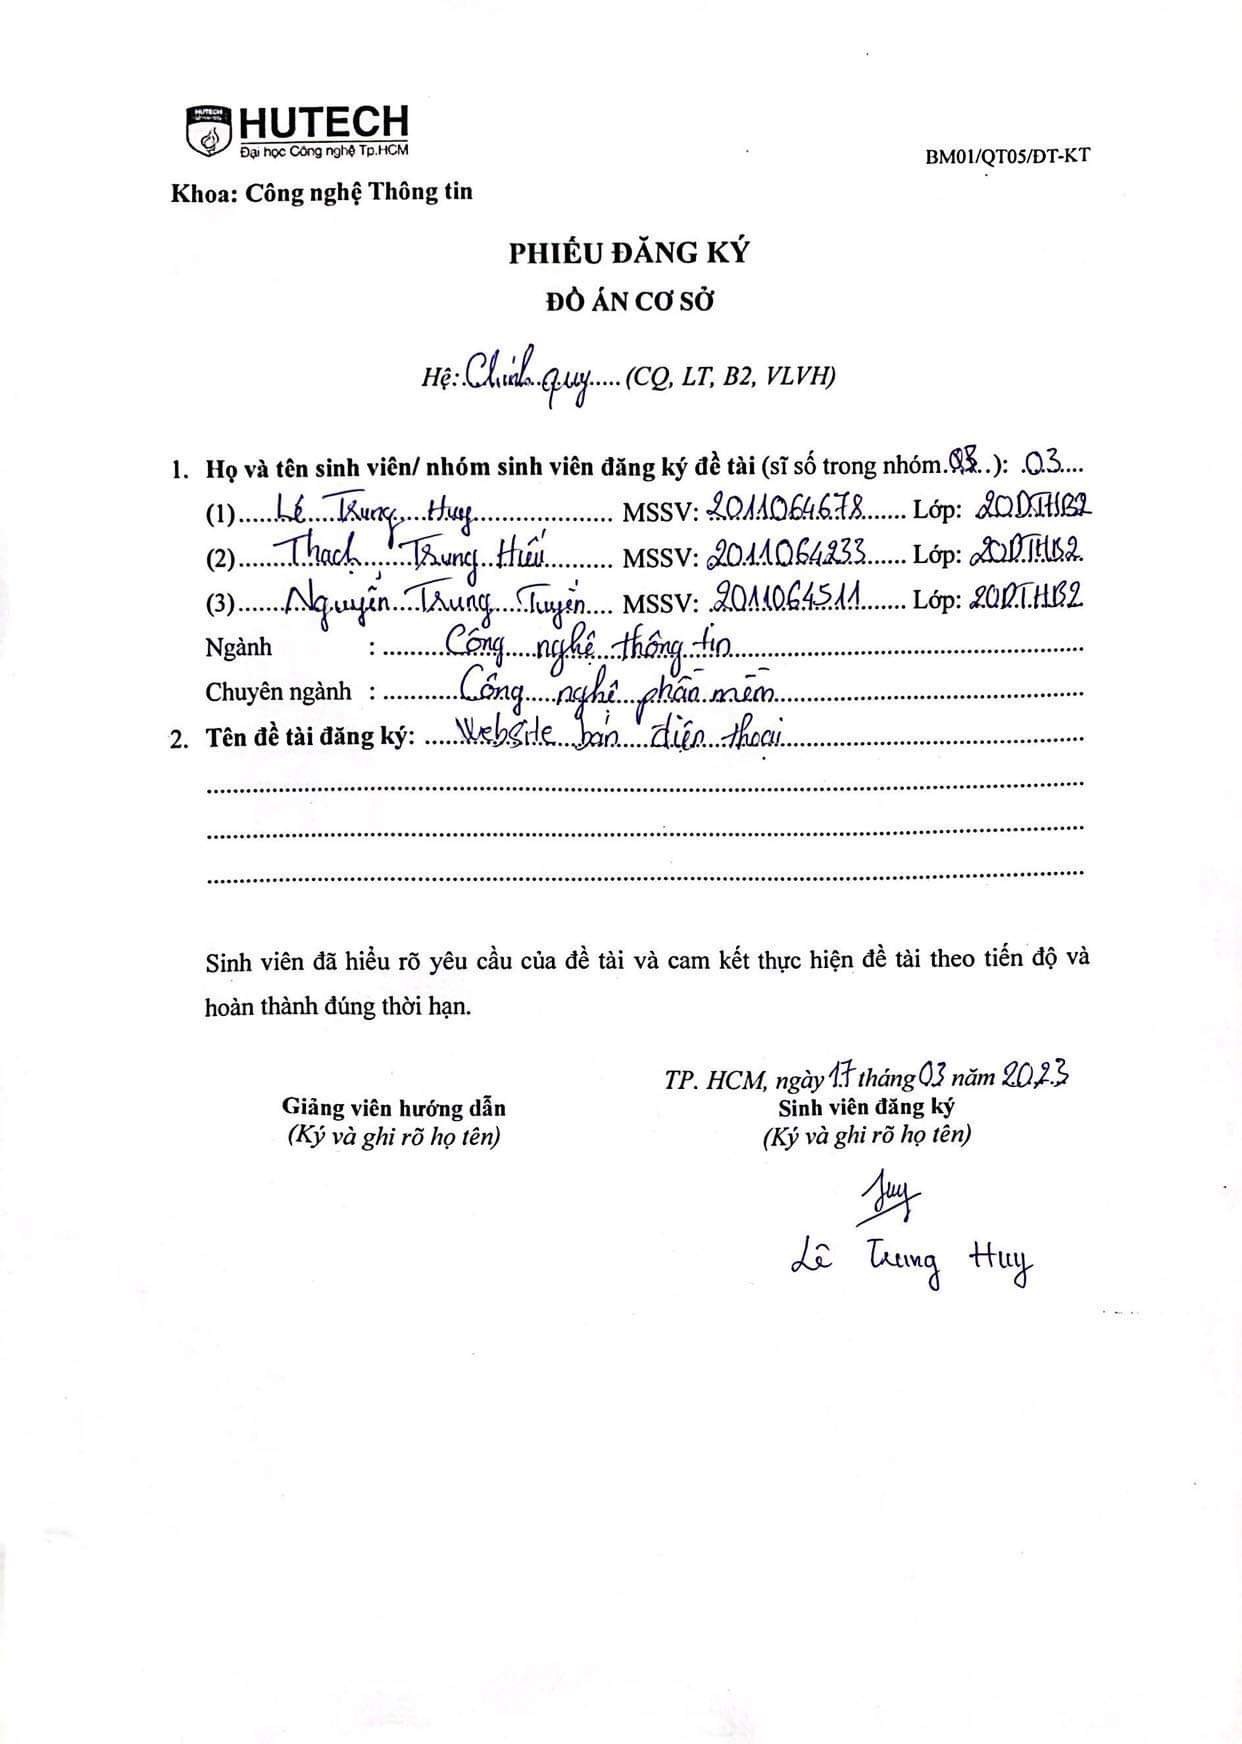 HUTECH
HUTECH
Đại học Công nghệ Tp.HCM
BM01/QT05/ĐT-KT
Khoa: Công nghệ Thông tin
PHIẾU ĐĂNG KÝ
ĐỒ ÁN CƠ SỞ
Hệ: Chính quy..... (CQ, LT, B2, VLVH)
1. Họ và tên sinh viên/ nhóm sinh viên đăng ký đề tài (sĩ số trong nhóm.03..): .03....
(1)......Lê Trung Huy...................... MSSV: 2011064678....... Lớp: 20DTHB2
(2)......Thạch Trung Hiếu.......... MSSV: 2011064233....... Lớp: 20DTHB2
(3)......Nguyễn Trung Tuyển.... MSSV: .2011064511....... Lớp: 20DTHB2
Ngành : ..........Công nghệ thông tin..........
Chuyên ngành : ............Công nghệ phần mềm..........
2. Tên đề tài đăng ký: .....Website bán điện thoại..........
Sinh viên đã hiểu rõ yêu cầu của đề tài và cam kết thực hiện đề tài theo tiến độ và
hoàn thành đúng thời hạn.
TP. HCM, ngày 17 tháng 03 năm 2023
Giảng viên hướng dẫn Sinh viên đăng ký
(Ký và ghi rõ họ tên) (Ký và ghi rõ họ tên)
Huy
Lê Trung Huy